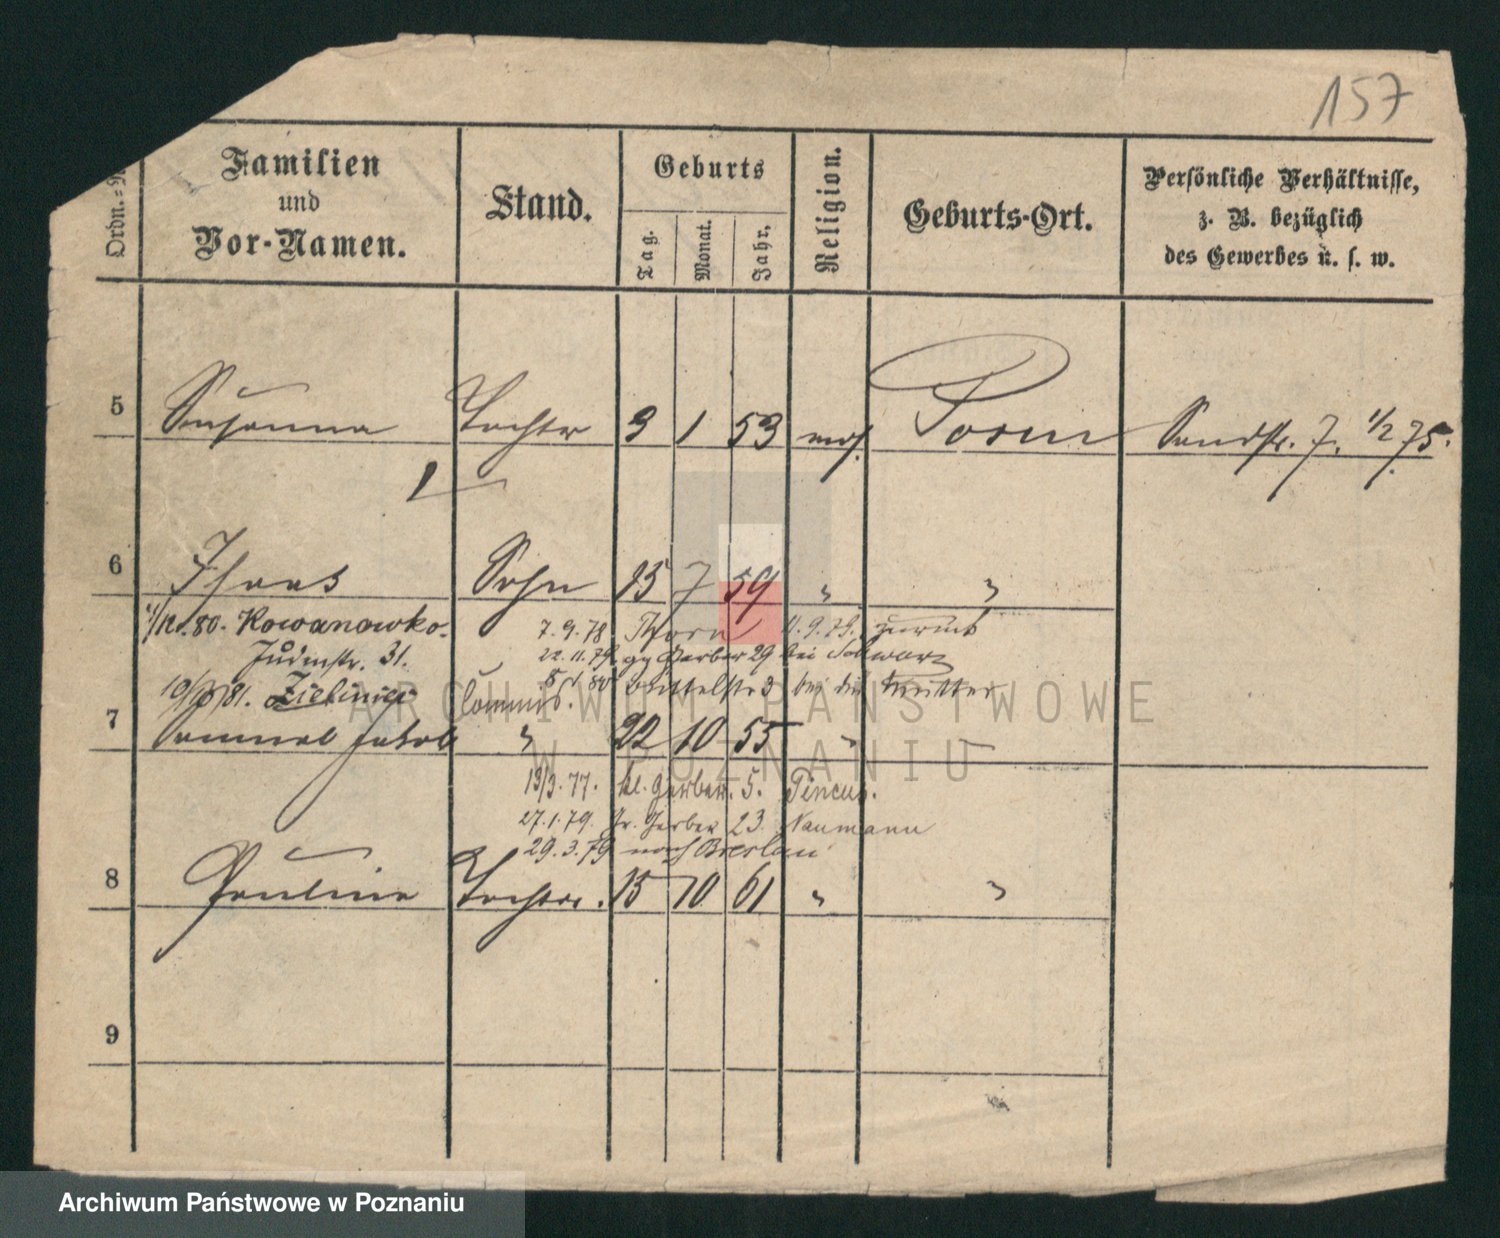 157
Ordn.=N
Familien
und
Vor-Namen.
Stand.
Geburts
Tag.
Monat.
Jahr.
Religion.
Geburts-Ort.
Persönliche Verhältnisse,
z. B. bezüglich
des Gewerbes u. s. w.
5 Susanna Tochter 3 1 53 mos. Posen Sandstr. 7. 1/2 75.
6 Isaak Sohn 15 7 59 " "
1/12.80. Kowanowko. 7.9.78 Thorn 11.9.79. zurück
Judenstr. 31. 22.11.79. gr Gerber 29 bei Schwarz
10/ 81. Zielinice Commis. 5.1.80 Büttelstr 3 bei der Mutter
7 Samuel Jakob " 22 10 55 "
13/3.77. kl. Gerber. 5. Pincus.
27.1.79. Gr. Gerber 23. Naumann
29.3.79 nach Breslau
8 Pauline Tochter. 15 10 61 " "
9
ARCHIWUM PAŃSTWOWE
W POZNANIU
Archiwum Państwowe w Poznaniu